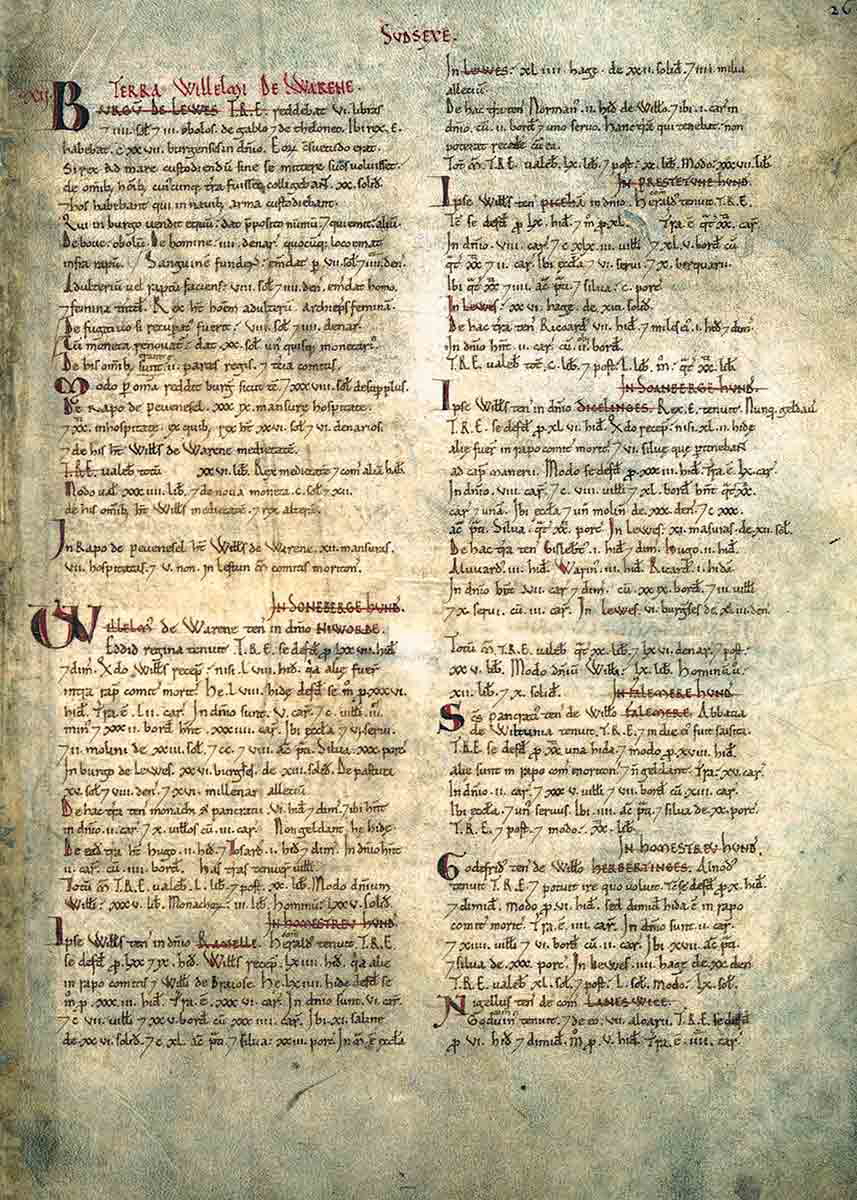 26
SUDSEXE.
XII. TERRA WILLELMI DE WARENE.
BURGŪ DE LEWES T.R.E. reddebat vi. libras
7 iiii. sol 7 iii. obolos. de gablo 7 de theloneo. Ibi rex. E.
habebat. c. xxvii. burgenses in dn̄io. Eoꝝ c̄suetudo erat.
Si rex ad mare custodiend̄u sine se mittere suos voluisset.
de om̄ib; hōib; cuicunq; tr̄a fuisset. colligebant. xx. solid.
7 hos habebant qui in nauib; arma custodiebant.
Qui in burgo vendit equū: dat p̄posito nūmū 7 qui emit: aliū.
De boue: obolū. De homine. iiii. denar. quocūq; loco emat
infra rapū. Sanguine fundens: em̄dat p̄ vii. sol 7 iiii. den.
Adulteriū vel raptū faciens: viii. sol 7 iiii. den. em̄dat homo.
7 femina tn̄td. Rex ht̄ hoēm adulterū. Archiep̄s feminā.
De fugitiuo si recupat fuerit: viii. sol 7 iiii. denar.
Cū moneta renouat: dat. xx. sol un̄ quisq; monetari.
De his om̄ib; erant. ii. partes regis. 7 tcia comitis.
Modo p̄ om̄a reddit burgū sicut tc̄ 7 xxxviii. sol desuplus.
De Rapo de peuenesel. xxx.ix. mansurę hospitatę.
7 xx. inhospitatę. ex quib; rex ht̄ xxvi. sol 7 vi. denarios.
7 de his ht̄ Witts de Warene medietatē.
T.R.E. valeb totū xxvi. lib. Rex medietatē 7 com̄ aliā habb̄
Modo ual xxxiiii. lib. 7 de noua moneta. c. sol 7 xii.
de his om̄ib; ht̄ Witts medietatē. 7 rex alterā.
In Rapo de peuenesel ht̄ Witts de Warene. xii. mansuras.
vii. hospitatas. 7 v. non.
IN SONEBERGE HUND.
Willelm de Warene ten in dn̄io NIWORDE.
Eddid regina tenuit. T.R.E. se defd p̄ lxxvii. hid
7 dim. Qdo Witts recep: nisi. lviii. hid. qa alię fuer
intra rap comit morit. Hę. lviii. hidę defd se m̄ p̄ xxxvi.
hid. Tr̄a. ē. lii. car. In dn̄io sunt. v. car. 7 c. uitti. iii.
min 7 xxxii. bord hn̄t. xxxiiii. car. Ibi ęccta 7 vi. serui.
7 ii. molini de xxiii. sol. 7 cc. 7 viii. ac̄ p̄ti. Silua. xxx. porc
In burgo de Lewes. xxvi. burgses de xiii. solid. De pastura
xv. sol 7 viii. den. 7 xvi. millenar allecium
De hac tr̄a ten monachi S pancratii. vi. hid 7 dim. 7 ibi hn̄t
in dn̄io. ii. car. 7 x. uittos cū. iii. car. Non geldant hę hidę.
De ead tr̄a ht̄ hugo. ii. hid. 7 Tosard. i. hid 7 dim. In dn̄io hn̄t
ii. car. cū. iiii. bord. Has tras tenuer uitti.
Totū m̄ T.R.E. valeb. L. lib. 7 post: xx. lib. Modo dn̄ium
Witti: xxxv. lib. Monachoꝝ: iii. lib. Hominū: lxxv. solid.
IN HOMESTREU HUND.
Ipse Witts ten in dn̄io RAMELLE. Herald tenuit. T.R.E.
se defd p̄ lxx 7 ix. hid. Witts recep. lxiiii. hid. qa alię
in rapo comitis 7 Witti de Braiose. Hę lxiiii hidę defd se
m̄ p̄. xxxiii. hid. Tr̄a. ē. xxxvi. car. In dn̄io sunt. vi. car.
7 c. vii. uitti 7 xxv. bord cū xxxiiii. car. Ibi. xi. salinę
de xxvi. solid. 7 c. xl. ac̄ p̄ti. 7 silua: xxiii. porc In m̄ ē ęccta
In LEWES: xliiii. hagę. de xxii. solid. 7 iiii. milia
alleciū.
De hac tr̄a ten Norman. ii. hid de Witto. 7 ibi. i. car in
dn̄io. cū. ii. bord 7 uno seruo. Hanc tr̄a qui tenebat: non
poterat recede cū ea.
Tot m̄. T.R.E. valeb. lx. lib. 7 post: xl. lib. Modo: xxxvii. lib.
IN PRESTETUNE HUND.
Ipse Witts ten PICEHĀ in dn̄io. Herald tenuit. T.R.E.
Tc̄ se defd p̄ lx. hid. 7 m̄ p̄ xl. Tr̄a. ē qt̄ xx. car.
In dn̄io. viii. car. 7 c. xlix. iii. uitti 7 xlv. bord cū
qt̄ xx. 7 ii. car. Ibi ęccta 7 vi. serui. 7 x. berquarii.
Ibi qt̄ xx 7 iiii. ac̄ p̄ti. 7 silua: c. porc
In LEWES: xxvi. hagę. de. xiii. solid.
De hac tr̄a ten Ricoard. vii. hid.
In dn̄io hn̄t. ii. car cū. iii. bord.
T.R.E. valeb tot. c. lib. 7 post: l. lib. m̄: qt̄ xx. lib.
IN SOANEBERGE HUND.
Ipse Witts ten in dn̄io DICELINGES. Rex. E. tenuit. Nunq geldau
T.R.E. se defd p̄ xlvi. hid. Qdo recep: nisi. xlii. hidę
alię fuer in rapo comit morit. 7 vi. siluę quę ptinebant
ad cap maneru. Modo se defd p̄ xxxiii. hid. Tr̄a. ē. lx. car.
In dn̄io. viii. car. 7 c. viii. uitti 7 xl. bord hn̄t qt̄ xx.
car 7 unā. Ibi ęccta 7 un molin de. xxx. den. 7 c. xxx.
ac̄ p̄ti. Silua. qt̄ xx. porc In Lewes. xi. masuras. de. xii. sol.
De hac tr̄a ten Gislebt. i. hid 7 dim. Hugo. ii. hid.
Aluuard. iii. hid. Warin. iii. hid. Ricard. i. hidā.
In dn̄io hn̄t. vii. car 7 dim. cū. xxix. bord. 7 iii. uitti
7 x. serui. cū. iii. car. In Lewes. vi. burgses de. xliii. den.
Totū m̄. T.R.E. valeb qt̄ xx. lib. 7 lxvi. denar. 7 post:
xxv. lib. Modo dn̄iū Witti: lx. lib. Hominū ū:
xii. lib. 7 x. solid. IN FALEMERE HUND.
Scs pancrati ten de Witto FALEMERE. Abbatia
de Wiltunia tenuit. T.R.E. 7 in die ei fuit saisita.
T.R.E. se defd p̄ xx una hida. 7 modo p̄ xviii. hid.
alię sunt in rapo com moriton. 7 n̄ geldant. Tr̄a: xv. car.
In dn̄io. ii. car. 7 xxxv. uitti 7 vii. bord cū. xiii. car.
Ibi ęccta. 7 un seruus. Ibi. iiii. ac̄ p̄ti. 7 silua de. xx. porc.
T.R.E. 7 post. 7 modo: xx. lib.
IN HOMESTREU HUND.
Godefrid ten de Witto HERBERTINGES. Alnod
tenuit T.R.E. 7 potuit ire quo voluit. Tc̄ se defd p̄ x. hid.
7 dimid. modo. p̄ vi. hid. sed dimid hida ē in rapo
comit morit. Tr̄a. ē. iiii. car. In dn̄io sunt. ii. car.
7 xiiii. uitti 7 vi. bord cū. ii. car. Ibi xvii. ac̄ p̄ti.
7 silua de. xxx. porc. In Lewes. iiii. hagę de. xx. den
T.R.E. valeb. xl. sol. 7 post: l. sol. Modo: lx. sol.
Nigellus ten de com LASNEWICE.
Goduin tenuit. 7 de eo. vii. aloarii. T.R.E. se defd
p̄ vi. hid 7 dimid. m̄ p̄. v. hid. Tr̄a. ē. iiii. car